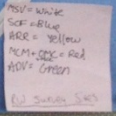 MSV = White
SOF = Blue
ARR = Yellow
MCM + = Red
ADV = Green
Survey